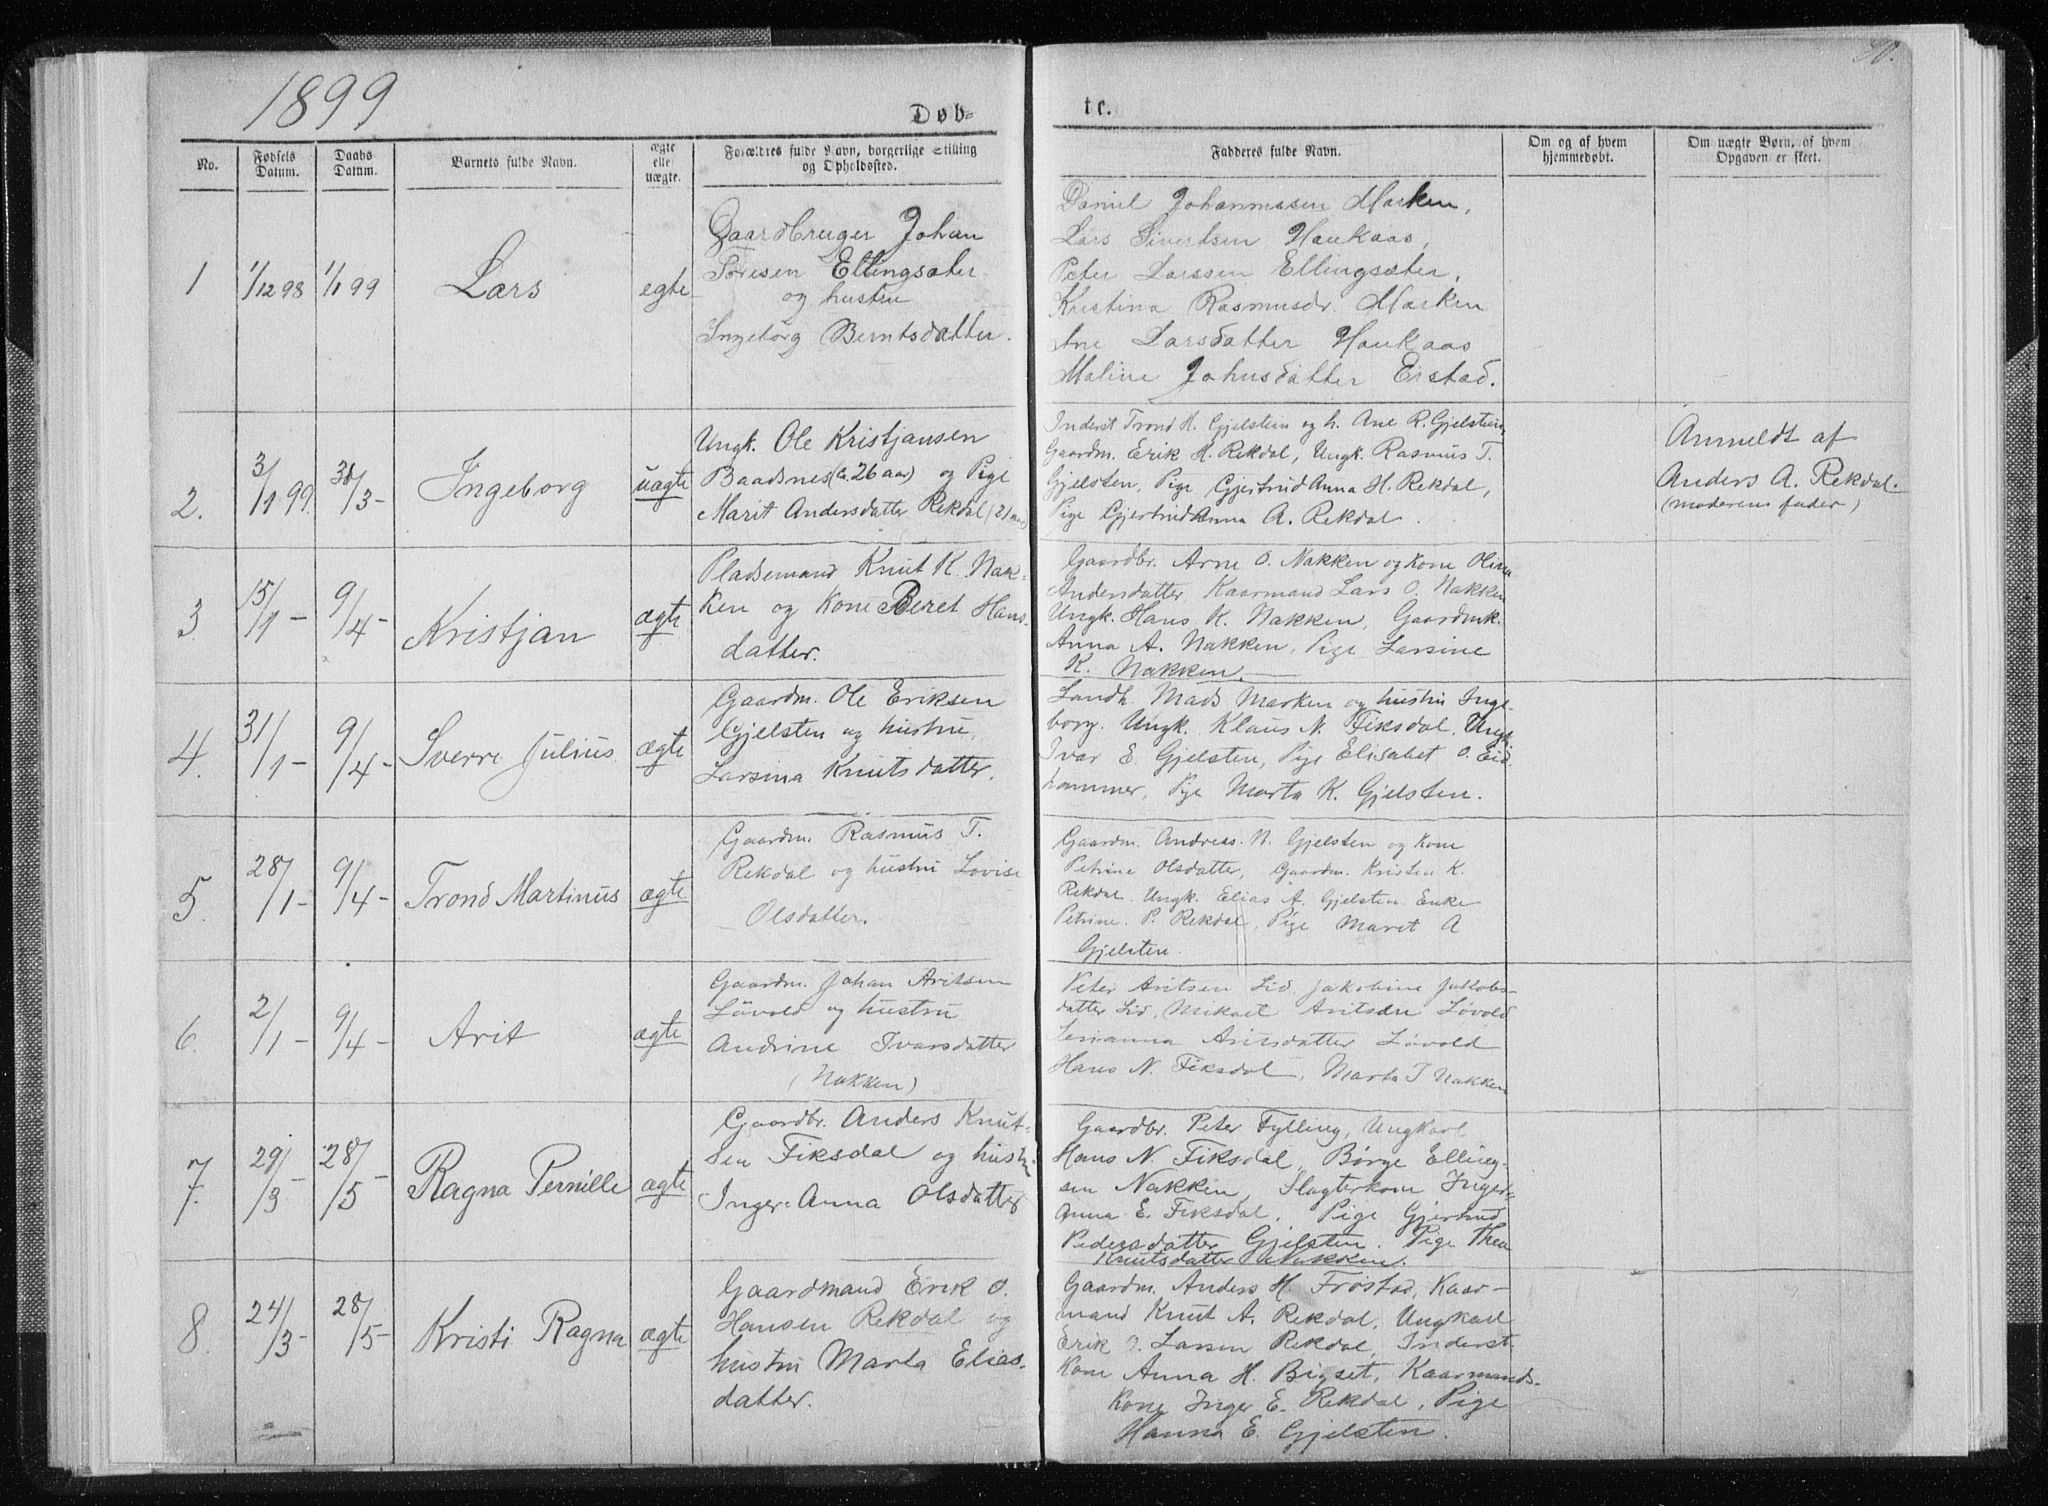 1899
Døb-
te.
No.
Fødsels Datum.
Daabs Datum.
Barnets fulde Navn.
ægte eller uægte.
Forældres fulde Navn, borgerlige Stilling og Opholdssted.
Fadderes fulde Navn.
Om og af hvem hjemmedøbt.
Om uægte Børn, af hvem Opgaven er skeet.
1
1/12 98
1/1 99
Lars
egte
Gaardbruger Johan
Ellingsæter
og hustru
Ingeborg Berntsdatter.
Daniel Johannessen Marken,
Lars Sivertsen Haukaas,
Peter Larssen Ellingsæter,
Kristina Rasmusdr. Marken
Ane Larsdatter Haukaas
Maline Johnsdatter Erstad.
2.
3/1 99.
30/3-
Ingeborg
uægte
Ungk. Ole Kristjansen
Baadsnes (c. 26 aar) og Pige
Marit Andersdatter Rekdal (21 aar)
Inderst Trond H. Gjelstein og h. Ane R. Gjelstein,
Gaardm. Erik H. Rekdal, Ungk. Rasmus T.
Gjelsten, Pige Gjertrud Anna H. Rekdal,
Pige Gjertrud Anna A. Rekdal.
Anmeldt af
Anders A. Rekdal.
(moderens fader)
3.
15/1-
9/4-
Kristjan
ægte
Pladsemand Knut K. Nak-
ken og Kone Beret Hans-
datter.
Gaardbr. Arne O. Nakken og Kone Olina
Andersdatter, Kaarmand Lars O. Nakken
Ungk. Hans K. Nakken, Gaardmk.
Anna A. Nakken, Pige Larsine
K. Nakken.
4.
31/1-
9/4-
Sverre Julius
ægte
Gaardm. Ole Eriksen
Gjelsten og hustru,
Larsina Knutsdatter.
Landh. Mads Marken og hustru Inge-
borg. Ungk. Klaus N. Fiksdal, Ungk.
Ivar E. Gjelsten, Pige Elisabet O. Eid-
hammer, Pige Marta K. Gjelsten.
5.
28/1-
9/4-
Trond Martinus
ægte
Gaardm. Rasmus T.
Rekdal og hustru Lovise
Olsdatter.
Gaardm. Andreas N. Gjelsten og Kone
Petrine Olsdatter, Gaardm. Kristen K.
Rekdal. Ungk. Elias A. Gjelsten Enke
Petrine P. Rekdal, Pige Maret A
Gjelsten.
6.
2/1-
9/4-
Arit
ægte
Gaardm. Johan Aritsen
Løvold og hustru
Andrine Ivarsdatter
(Nakken)
Peter Aritsen Lid. Jakobine Jakobs-
datter Lid, Mikael Aritsen Løvold
Aritsdatter Løvold
Hans N. Fiksdal, Marta I Nakken
7.
29/3-
28/5-
Ragna Pernille
ægte
Gaardbr. Anders Knut-
sen Fiksdal og hustru
Inger-Anna Olsdatter
Gaardbr. Peter Fylling, Ungkarl
Hans N. Fiksdal, Børge Elling-
sen Nakken, Slagterkone
Anna E. Fiksdal. Pige Gjertrud
Pedersdatter Gjelsten. Pige Thea
Knutsdatter Nakken.
8.
24/3-
28/5-
Kristi Ragna
ægte
Gaardmand Erik O.
Hansen Rekdal og
hustru Marta Elias-
datter.
Gaardm. Anders H. Frostad, Kaar-
mand Knut A. Rekdal, Ungkarl
Erik J. Larsen Rekdal, Inderst-
kone Anna H. Bigset, Kaarmands-
kone Inger E. Rekdal, Pige
Hanna E. Gjelsten.